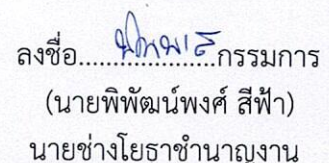 ลงชื่อ.......................กรรมการ
(นายพิพัฒน์พงศ์ สีฟ้า)
นายช่างโยธาชำนาญงาน